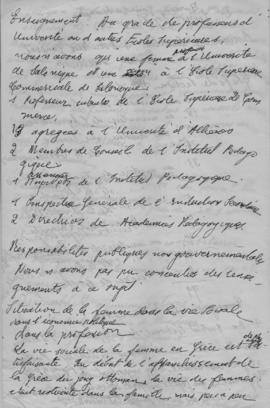 Enseignement. Au grade de professeur d'
Université ou d'autres Ecoles Supérieures,
nous n'avons qu'une femme à l'Université
de Salonique et une à l'Ecole Supérieure
Commerciale de Salonique.
1 Professeur de l'Ecole Supérieure de Com
merce.
13 agregées à l'Université d'Athènes
2 Membres du Conseil de l'Institut Pédago
gique
1 de l'Institut Pédagogique.
1 Inspectrice Générale de l'Instruction
2 Directrices de Académies Pédagogiques
Responsabilités publiques non gouvernementales
Nous n'avons pas pu de rensei
gnements à ce sujet.
Situation de la femme dans la vie sociale
dans l'économie politique
dans la profession
La vie sociale de la femme en Grèce est
satisfaisante. Au début de l'affranchissement de
la Grèce du joug ottoman, la vie des femmes
était restreinte dans la famille, mais peu à peu